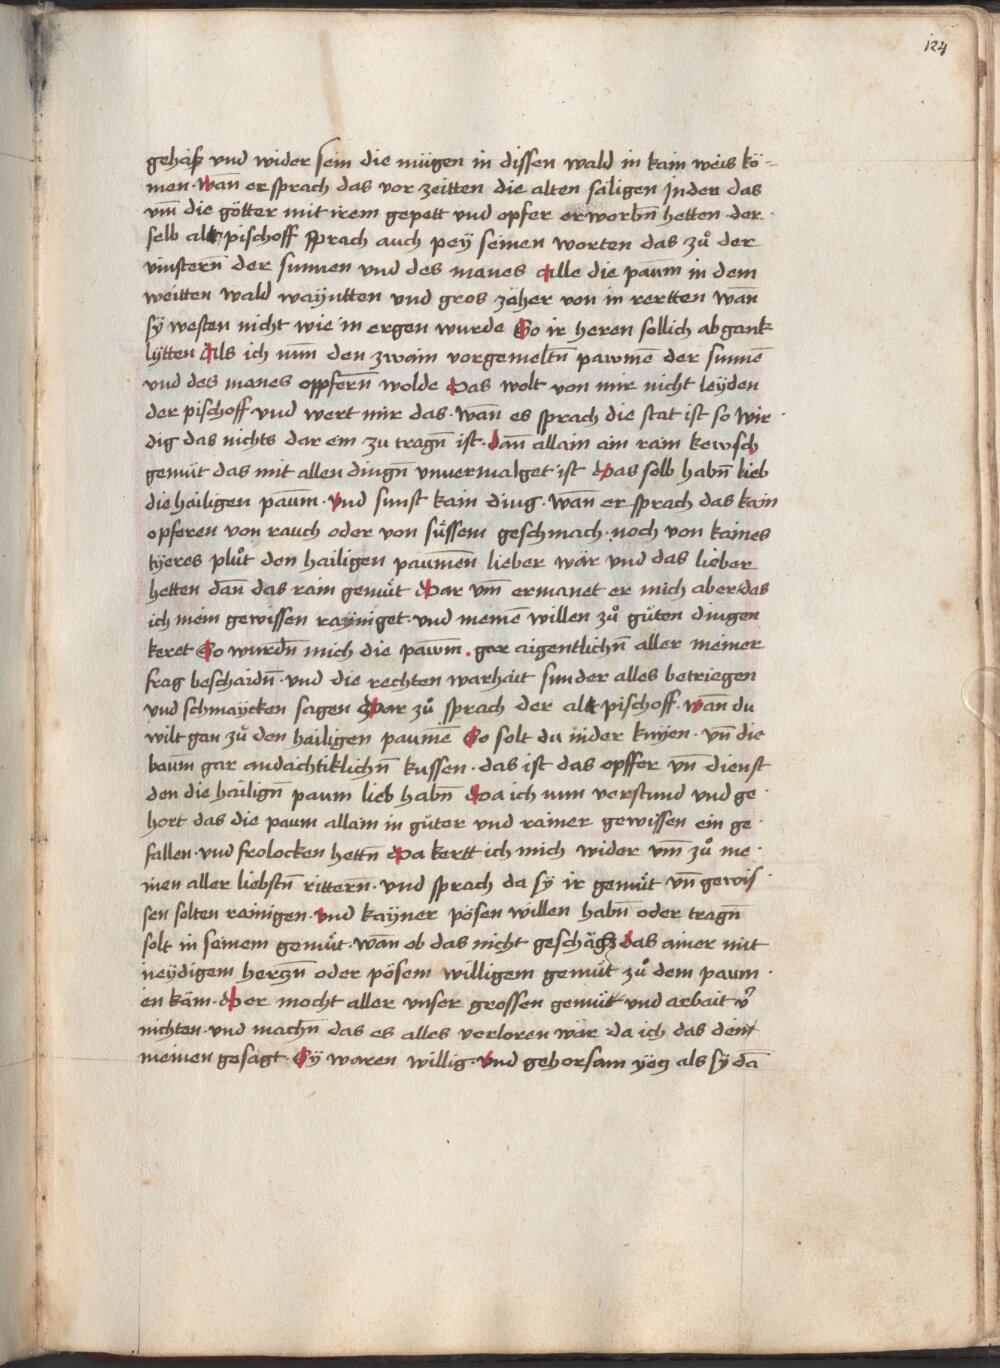 124
gehäß vnd wider sein die mügen in dissen wald in kain weis kö-
men · Wan̄ er sprach das vor zeitten die alten säligen Inden das
vm̄ die götter mit irem gepett vnd opfer erworbn̄ hetten · der ·
selb alt pischoff sprach auch peÿ seinen worten das zů der
vinstern̄ der sunnen vnd des manes Alle die paum̄ in dem
weitten wald waÿntten vnd gros zäher von in rertten wan̄
sÿ westen nicht wie in ergen wurde So ir heren sollich abgank
lÿtten Als ich nun̄ den zwain vorgemeltn̄ pawmē der sunnē
vnd des manes oppfern̄ wolde Das wolt von mir nicht leÿden
der pischoff · vnd wert mir das · wan̄ es sprach die stat ist so wir ·
dig das nichts dar ein zu tragn̄ ist · dan̄ allain ain rain kewsch
gemüt das mit allen dingn̄ vnuermalget ist Das selb habn̄ lieb
die hailigen paum · Vnd sunst kain ding · wan̄ er sprach das kain
opferen von rauch oder von süssem geschmach · noch von kaines
tÿeres plůt den hailigen paumēn lieber wär vnd das lieber
hetten dan̄ das rain gemüt Dar vm̄ ermanet er mich aber das
ich mein gewissen raÿniget · vnd meinē willen zů güten dingen
keret So wurdn̄ mich die pawm̄ · gar aigentlichn̄ aller meiner
frag beschaidn̄ · vnd die rechten warhait sunder alles betriegen
vnd schmaÿcken sagen Dar zů sprach der alt pischoff · wan̄ du
wilt gan zů den hailigen paumē So solt du nider knÿen · vn̄ die
baum̄ gar andächtiklichn̄ kussen · das ist das opffer vn̄ dienst
den die hailign̄ paum lieb habn̄ Da ich nun verstund vnd ge ·
hort das die paum allain in güter vnd rainer gewissen ein ge ·
fallen · vnd frolocken hettn̄ Da kertt ich mich wider vm̄ zů me ·
inen aller liebstn̄ rittern̄ · vnd sprach da sÿ ir gemüt vn̄ gewis ·
sen solten rainigen · vnd kaÿner pösen willen habn̄ oder tragn̄
solt in seinem gemüt · wan̄ ob das nicht geschäch das ainer mit
neÿdigem herczn̄ oder pösem willigem gemüt zů dem paum ·
en käm · Der mocht aller vnser grossen gemüt vnd arbait v̄
nichten · vnd machn̄ das es alles verloren wär da ich das den
meinen gesagt · Sÿ waren willig · Vnd gehorsam ÿecz als sÿ dā